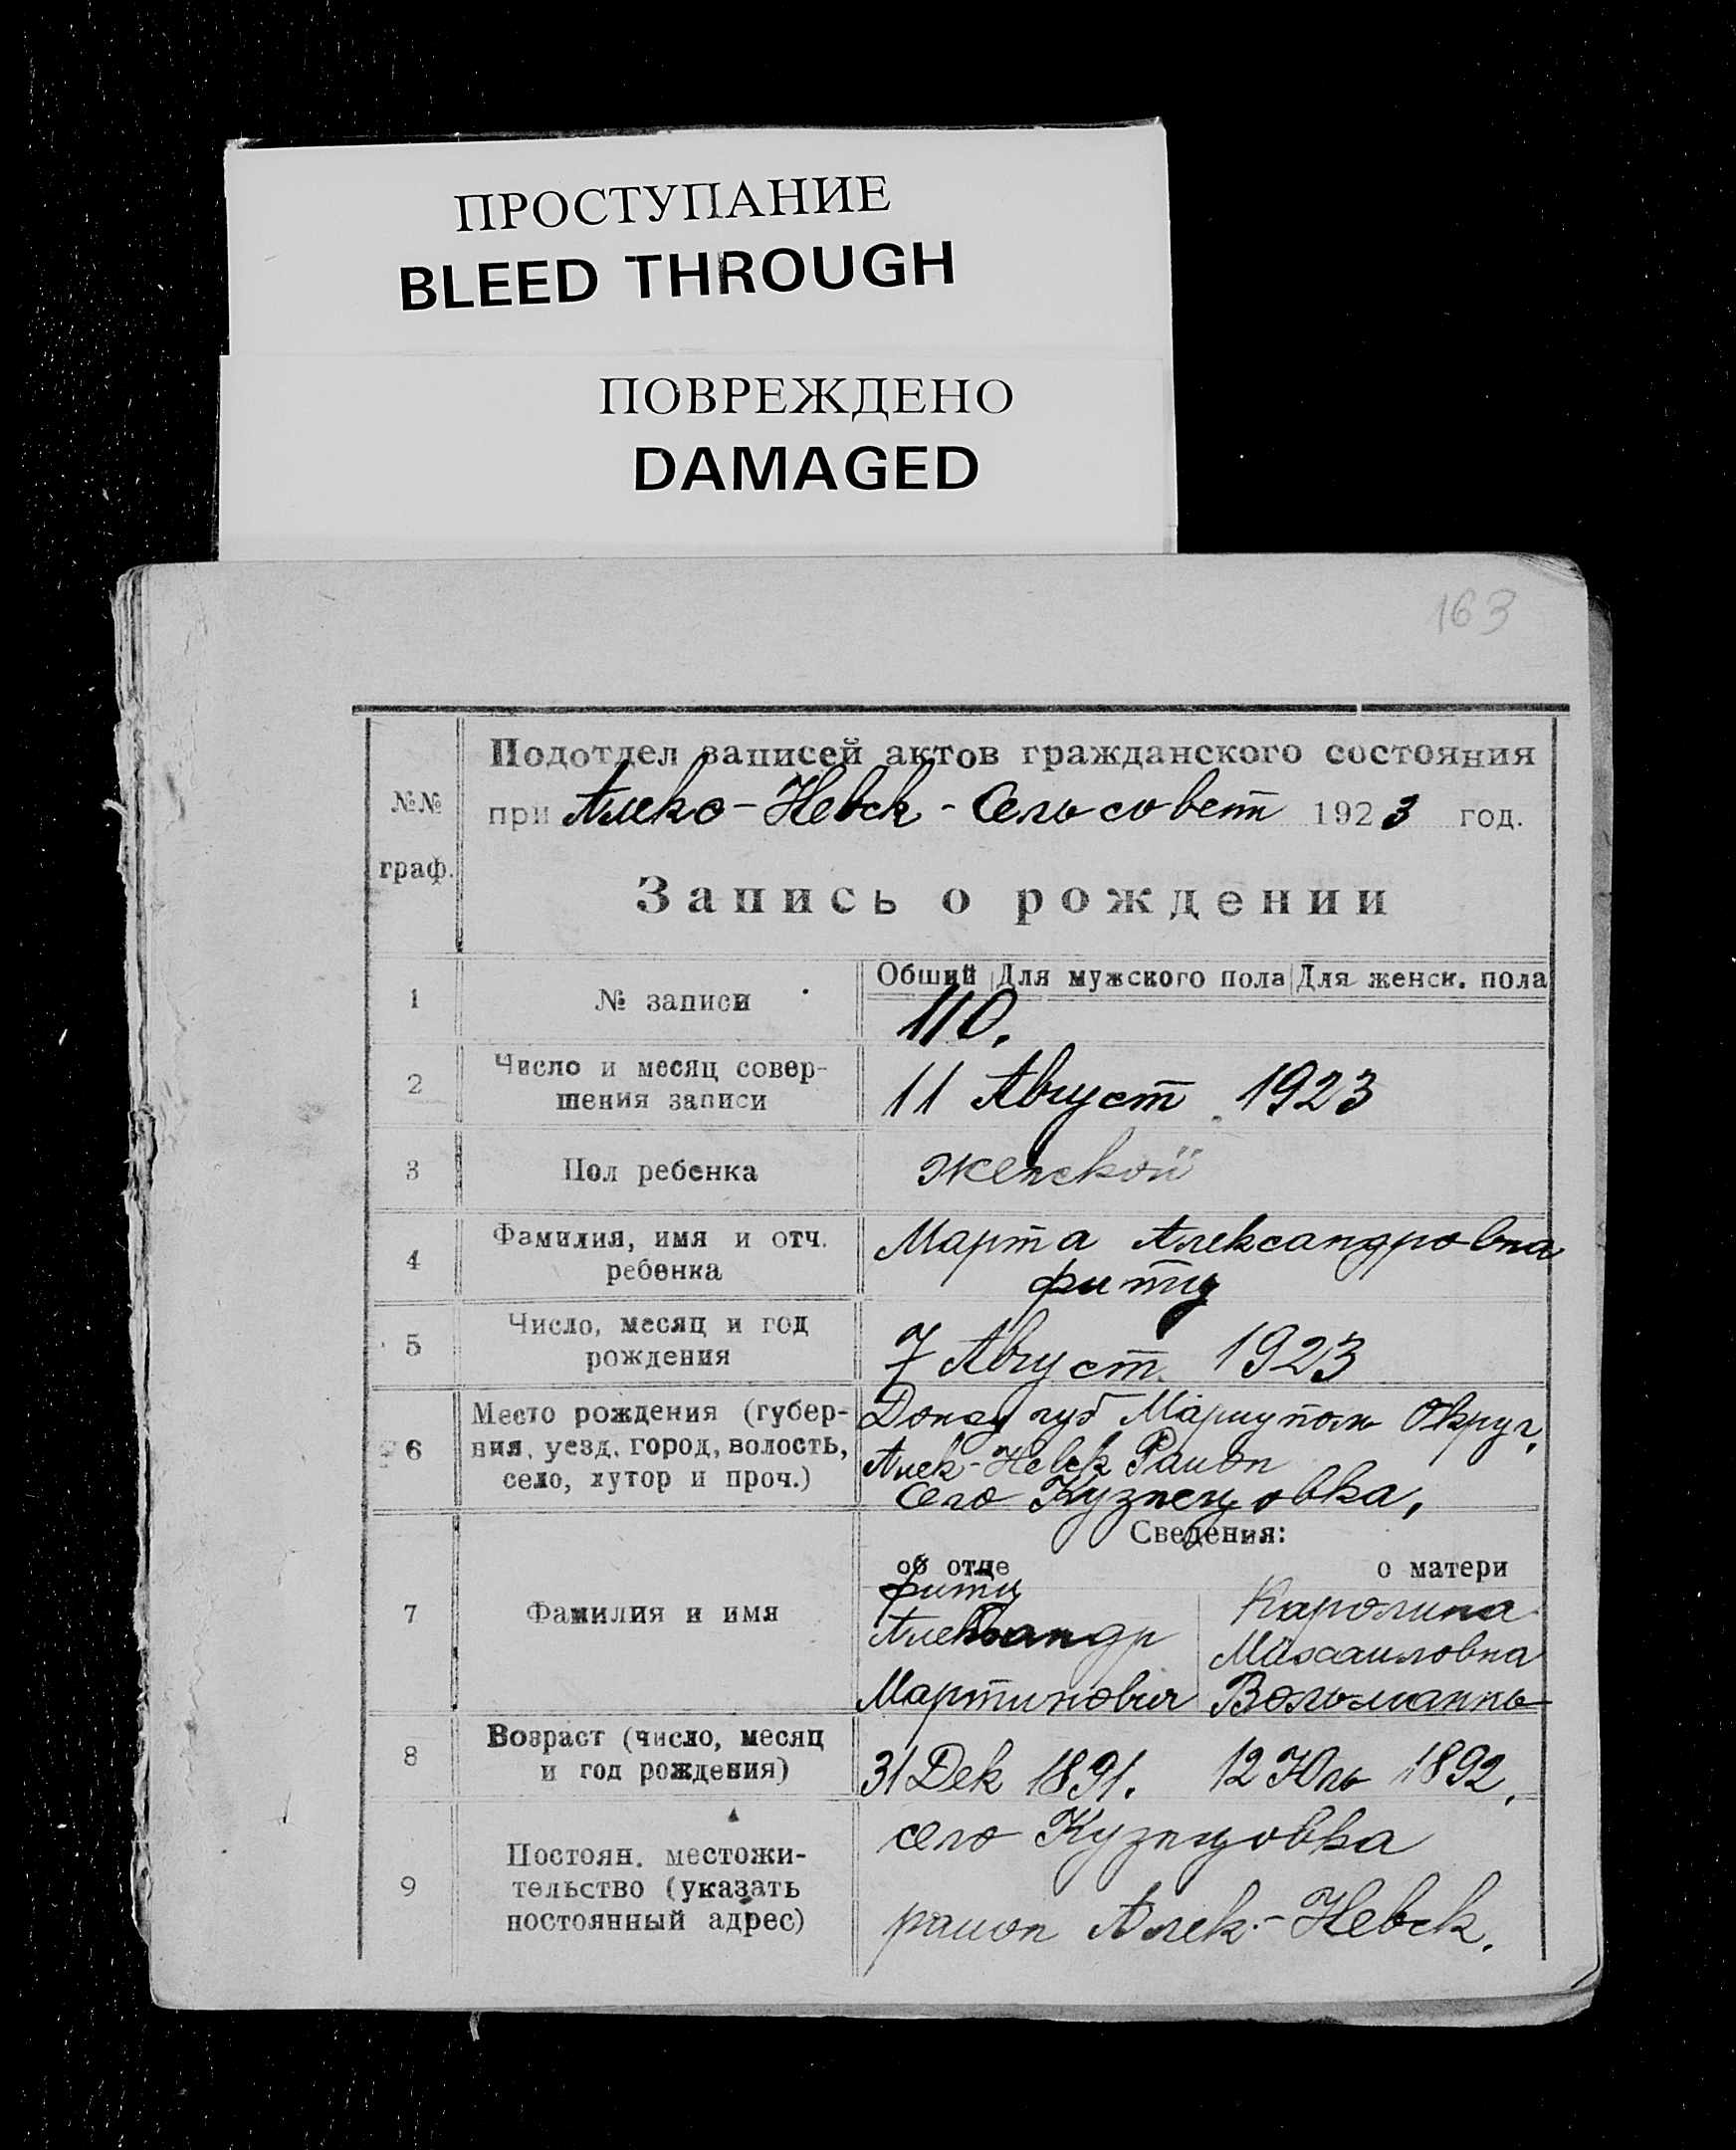 ПРОСТУПАНИЕ
BLEED THROUGH
ПОВРЕЖДЕНО
DAMAGED
163
№№ граф.
Подотдел записей актов гражданского состояния
при Алекс-Невск-Сельсовет 1923 год.
Запись о рождении
Общий Для мужского пола Для женск. пола
1 № записи 110.
2 Число и месяц совер-
шения записи 11 Август 1923
3 Пол ребенка женской
4 Фамилия, имя и отч. Марта Александровна
ребенка Фитц
5 Число, месяц и год
рождения 7 Август 1923
Место рождения (губер- Донец губ Мариуполь Округ,
6 ния, уезд, город, волость, Алек-Невск Раион
село, хутор и проч.) село Кузнецовка,
Сведения:
об отце о матери
7 Фамилия и имя
Фитц Каролина
Александр Махаиловна
Мартинович Вольманнь
8 Возраст (число, месяц
и год рождения) 31 Дек 1891. 12 Юль 1892.
9 Постоян. местожи- село Кузнецовка
тельство (указать
постоянный адрес) раион Алек.-Невск.